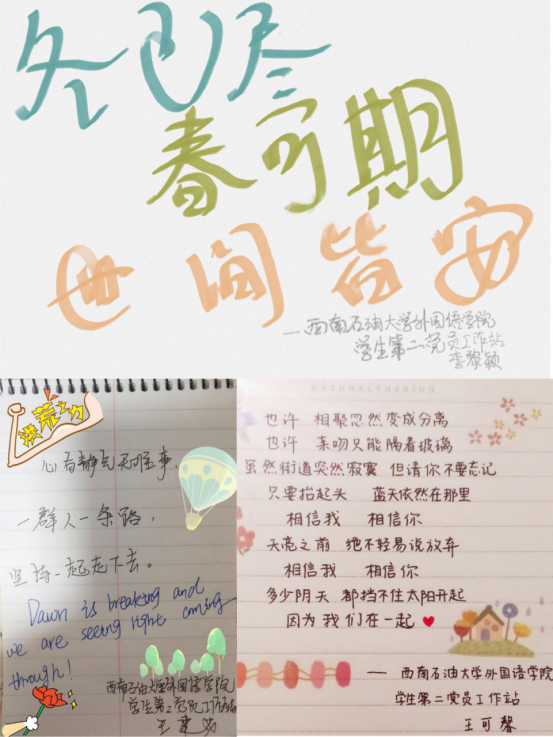 冬已尽
春可期
世间皆安
—西南石油大学外国语学院
学生第二党员工作站
洪荒之力
心有静气无难事，
一群人一条路，
坚持一起走下去。
Dawn is breaking and
we are seeing light coming
through!
西南石油大学外国语学院
学生第二党员工作站
王
NATURALTHEKING
也许 相聚忽然变成分离
也许 亲吻只能隔着玻璃
虽然街道突然寂寞 但请你不要忘记
只要抬起头 蓝天依然在那里
相信我 相信你
天亮之前 绝不轻易说放弃
相信我 相信你
多少阴天 都挡不住太阳升起
因为我们在一起
— 西南石油大学外国语学院
学生第二党员工作站
王可馨